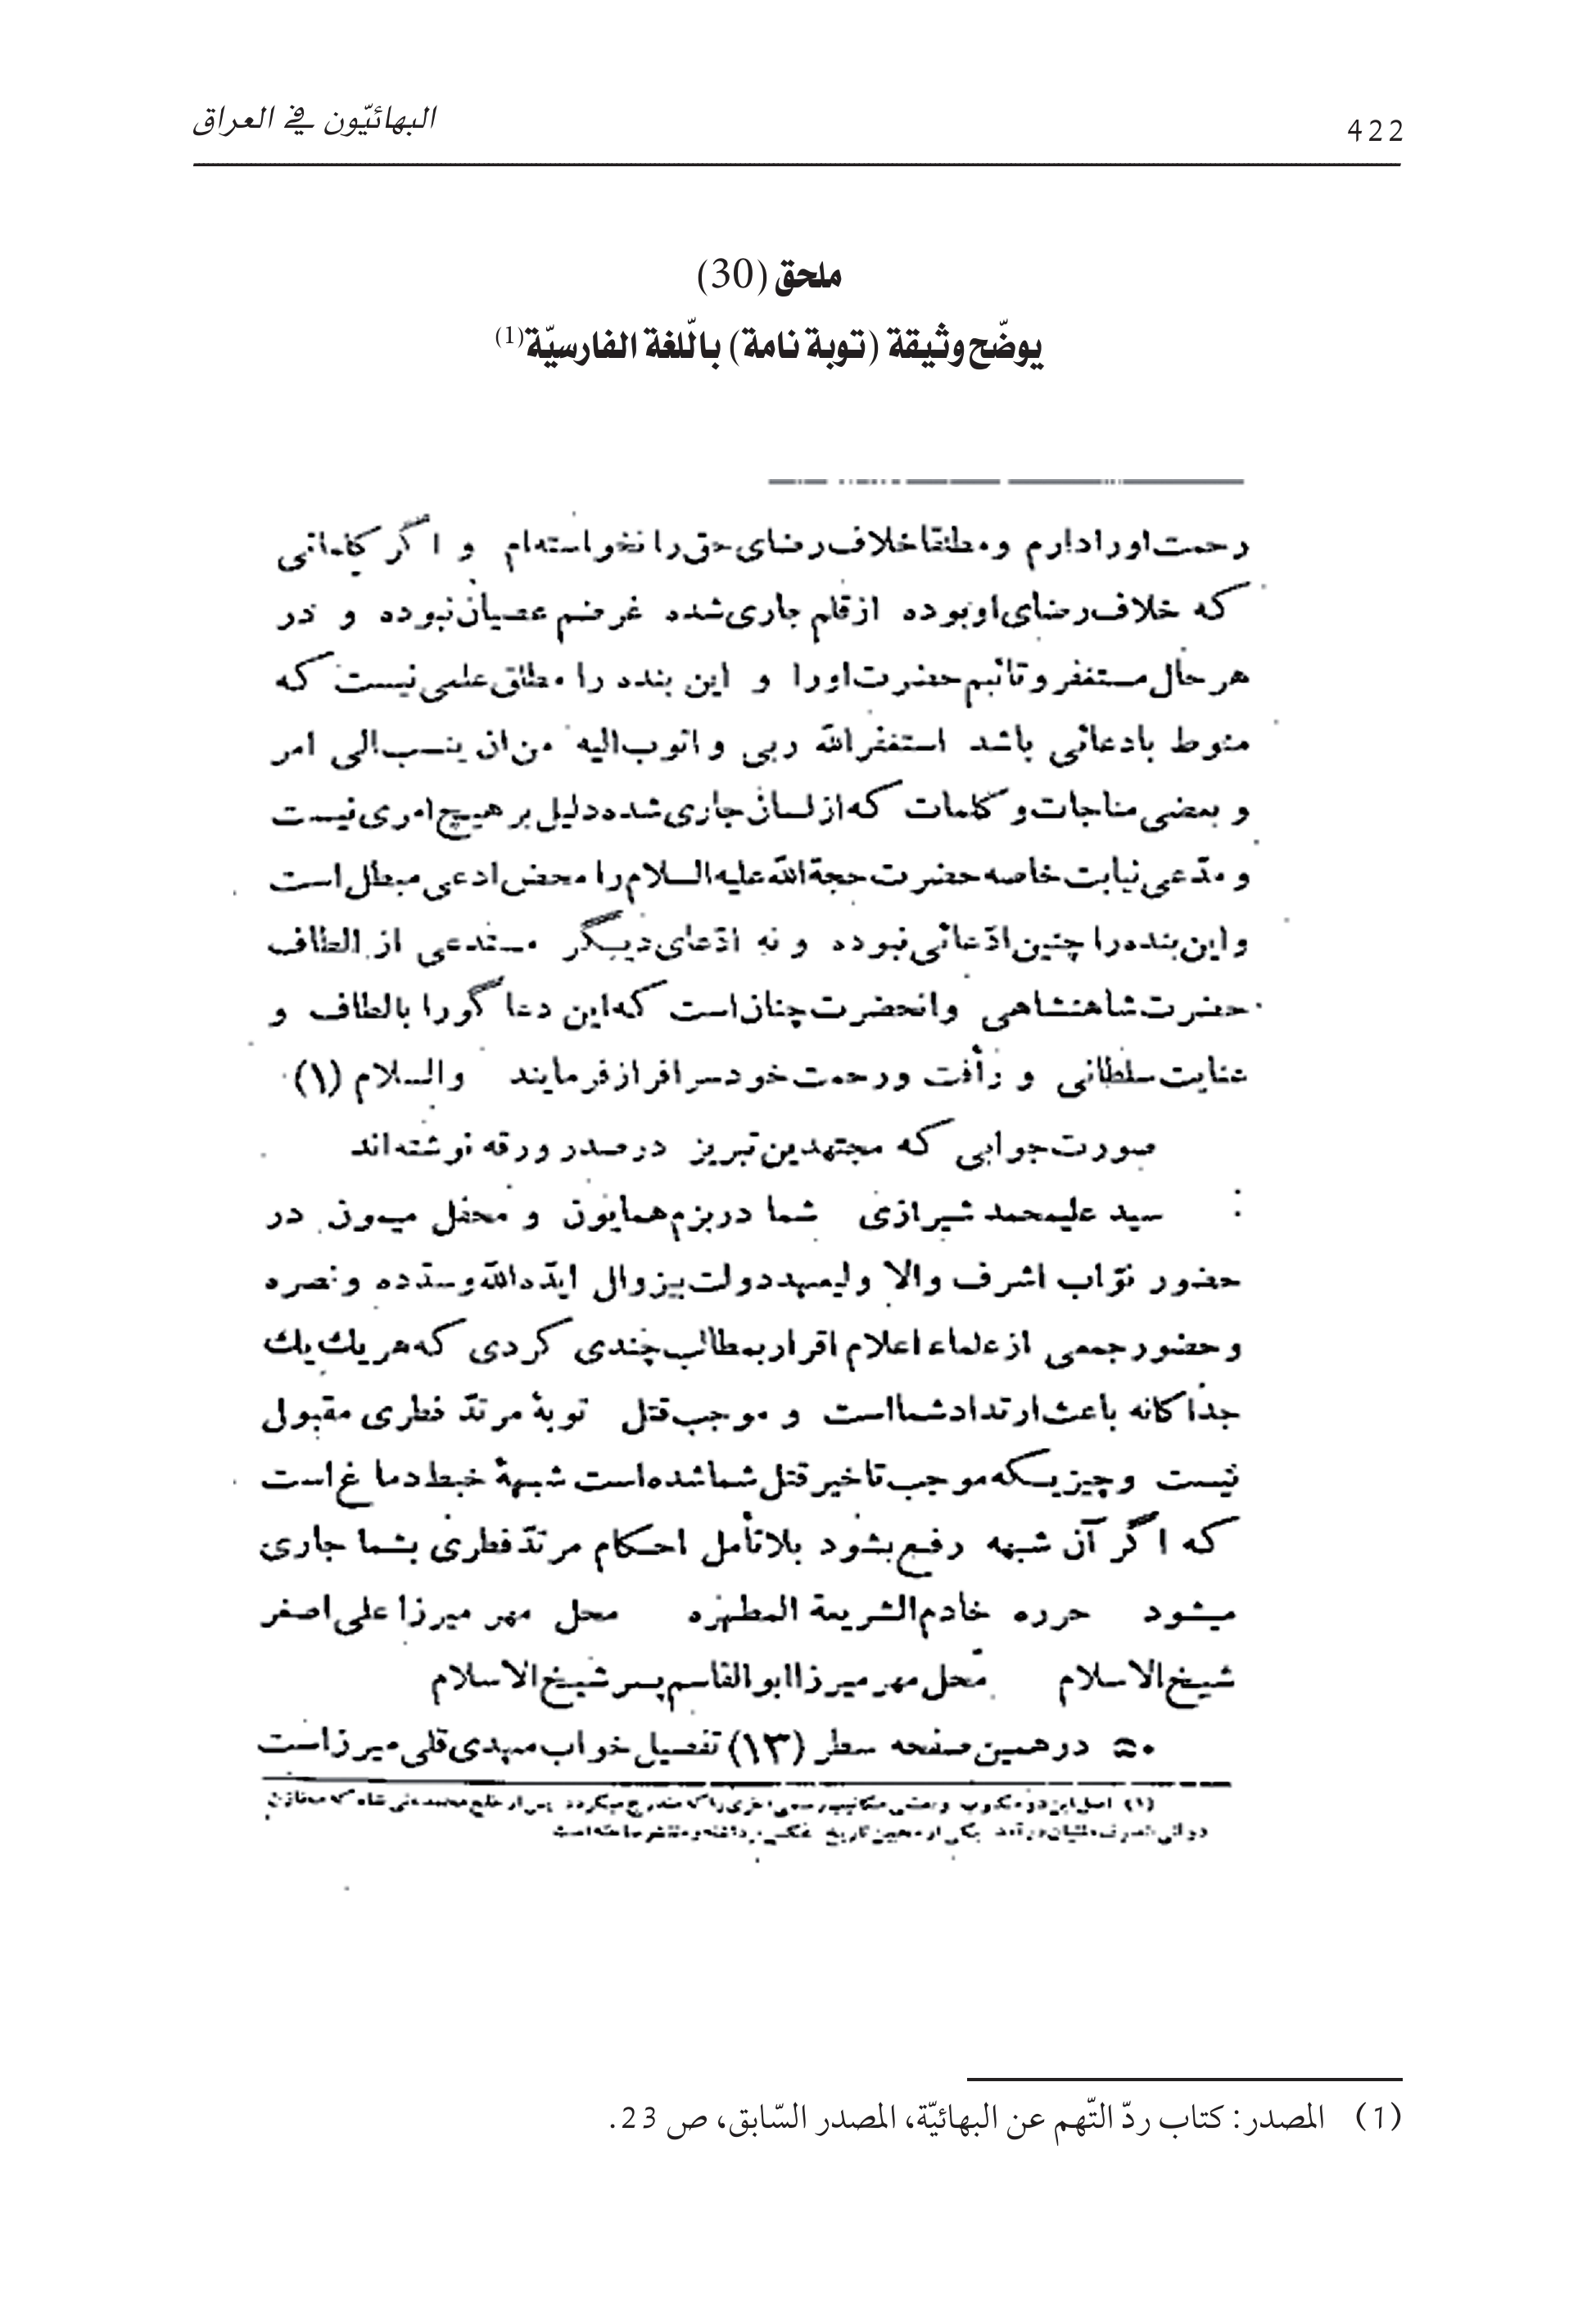 422
البهائيّون في العراق
ملحق (30)
يوضّح وثيقة (توبة نامة) باللّغة الفارسيّة(1)
رحمت اورا دارم و مطلقا خلاف رضای حق را نخواسته‌ام و اگر کلماتی
که خلاف رضای او بوده از قلم جاری شده غرضم عصیان نبوده و در
هر حال مستغفر و تائبم حضرت اورا و این بنده را مطلق علمی نیست که
منوط بادعائی باشد استغفر الله ربی و اتوب الیه من ان ینسب الی امر
و بعضی مناجات و کلمات که از لسان جاری شده دلیل بر هیچ امری نیست
و مدّعی نیابت خاصه حضرت حجة الله علیه السلام را محض ادعی مبطل است
و این بنده را چنین ادّعائی نبوده و نه ادّعای دیگر مستدعی از الطاف
حضرت شاهنشاهی و انحضرت چنان است که این دعا گو را بالطاف و
عنایت سلطانی و رأفت و رحمت خود سرافراز فرمایند والسلام (۱)
صورت جوابی که مجتهدین تبریز در صدر ورقه نوشته‌اند
سید علیمحمد شیرازی شما در بزم همایون و محفل میمون در
حضور نوّاب اشرف والا ولیعهد دولت بیزوال ایّده الله و سدّده و نصره
و حضور جمعی از علماء اعلام اقرار بمطالب چندی کردی که هر یك یك
جداکانه باعث ارتداد شما است و موجب قتل توبهٔ مرتدّ فطری مقبولی
نیست و چیزیکه موجب تاخیر قتل شما شده است شبههٔ خبط دماغ است
که اگر آن شبهه رفع بشود بلا تأمل احکام مرتدّ فطری بشما جاری
میشود حرره خادم الشریعة المطهره محل مهر میرزا علی اصغر
شیخ الاسلام محل مهر میرزا ابوالقاسم پسر شیخ الاسلام
در همین صفحه سطر (۱۳) تفصیل خواب مهدی قلی میرزاست
(۱) اصل این دو مکتوب و بعضی مکاتیب رسمی دیگری را که مندرج میگردد پس از خلع محمد علی شاه که مخازن
(1) المصدر: كتاب ردّ التّهم عن البهائيّة، المصدر السّابق، ص 23.